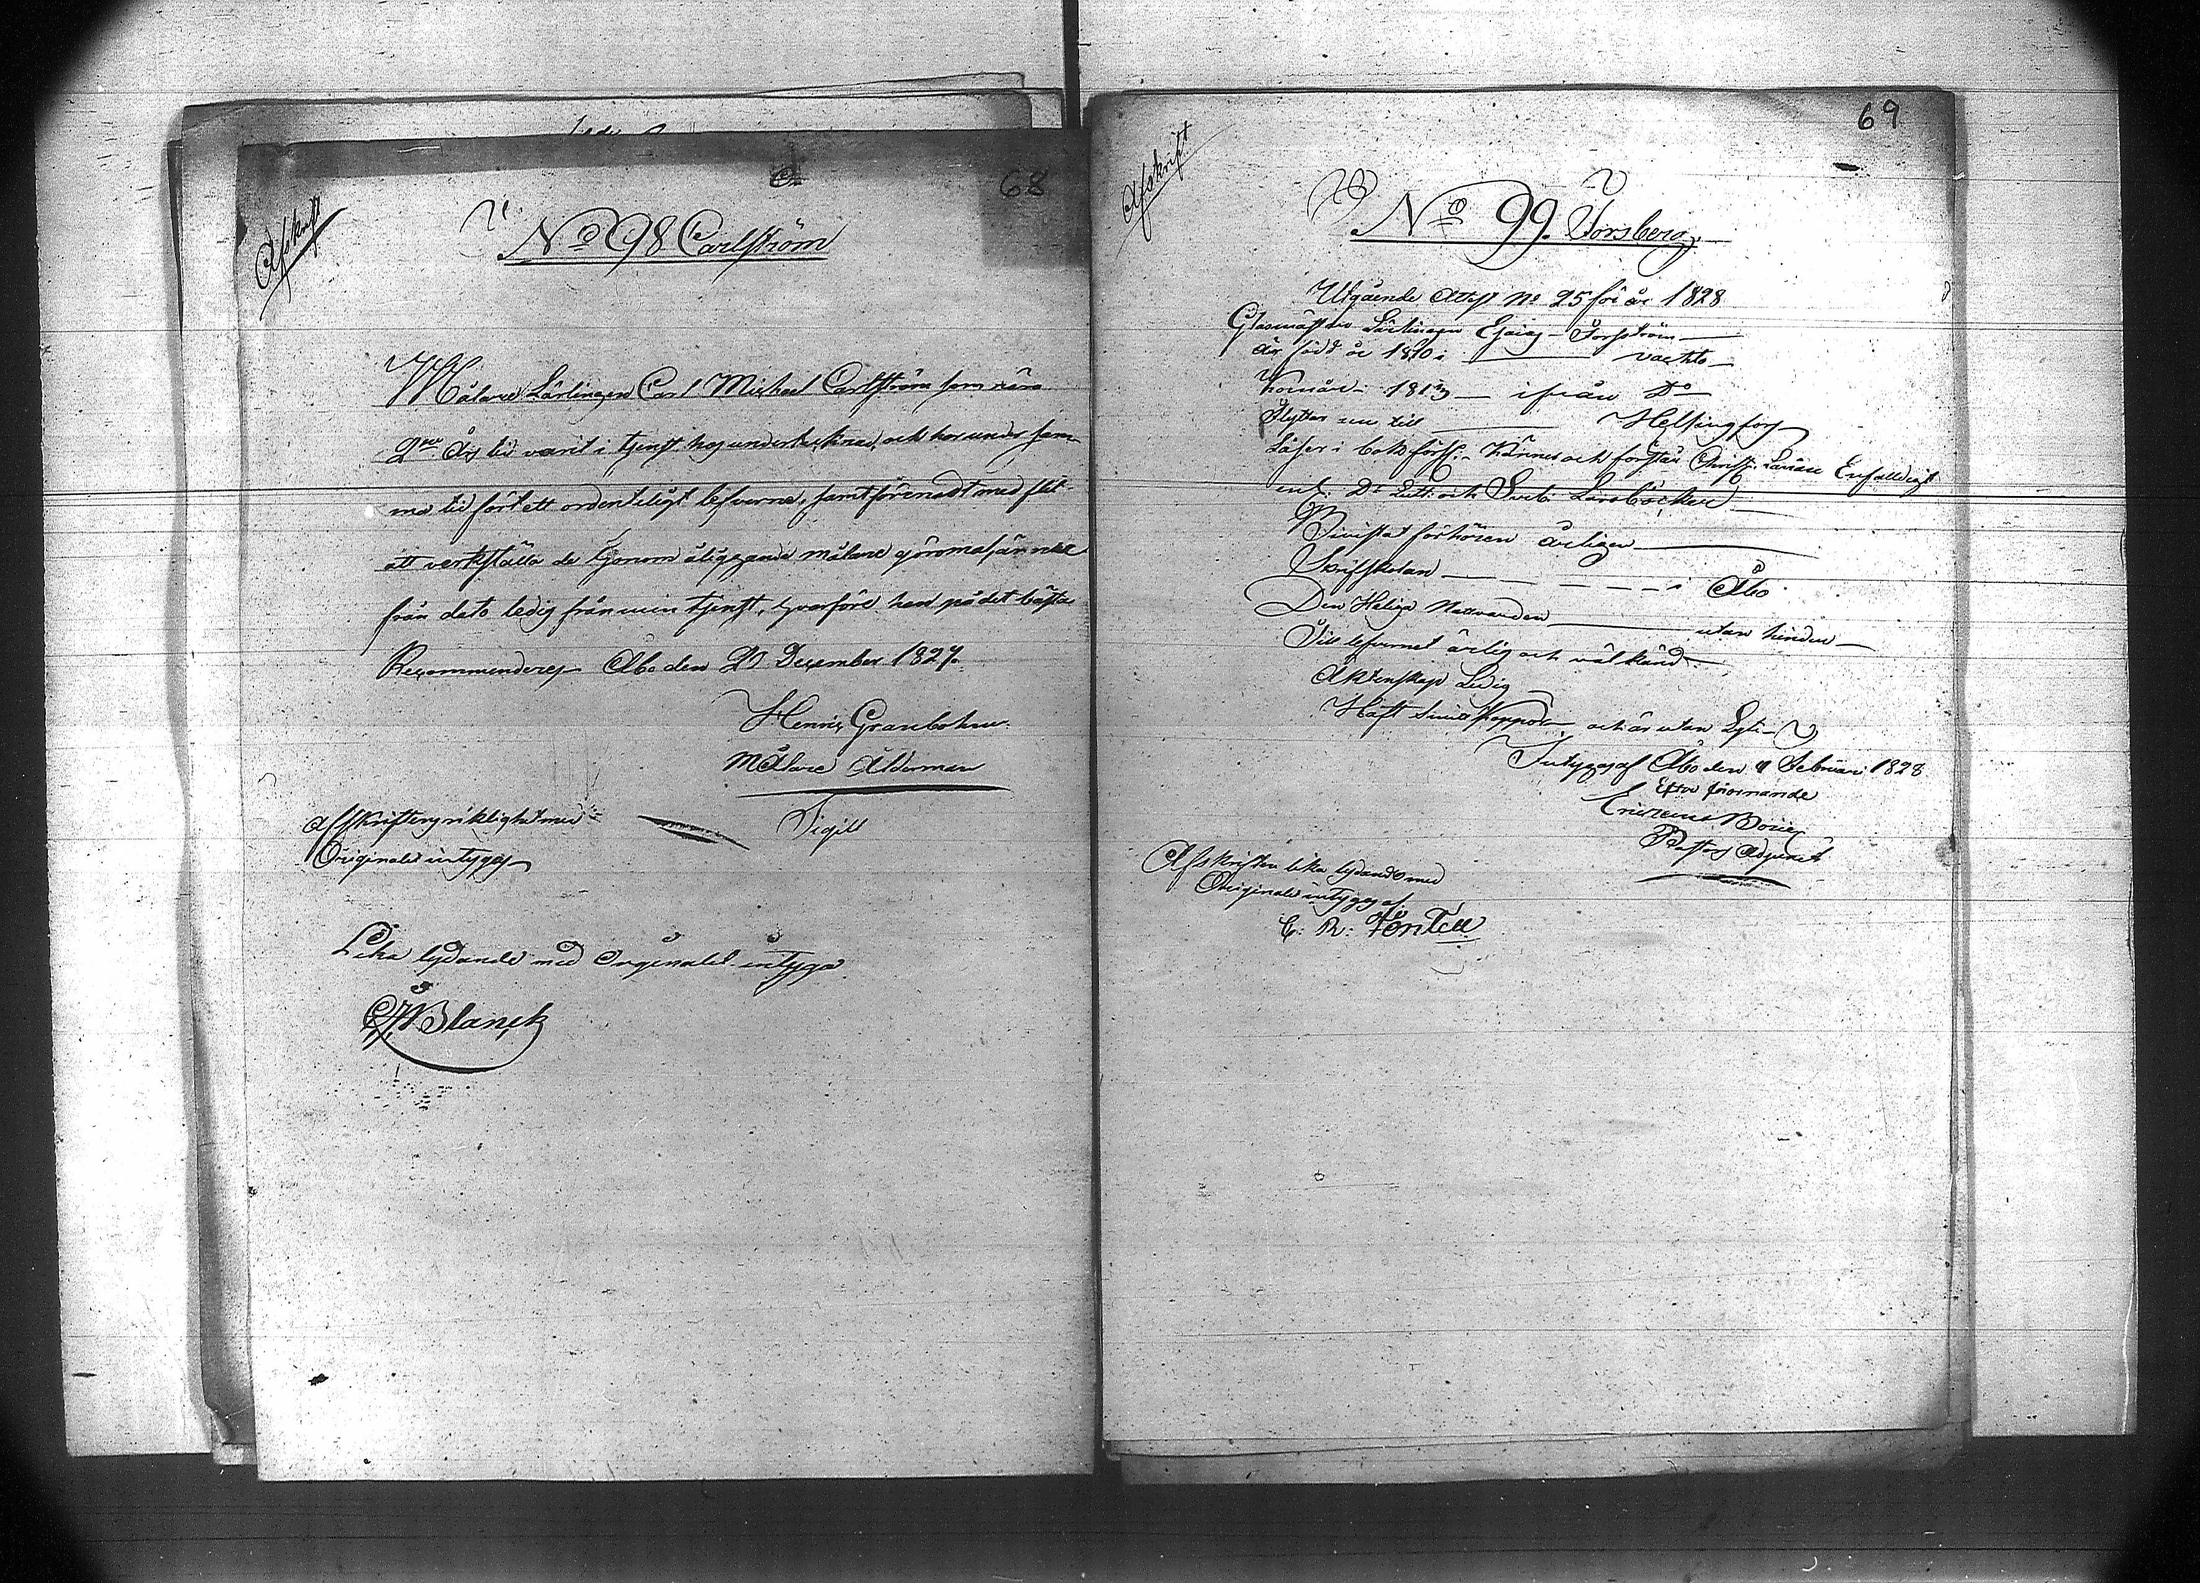 68
Afskrift
No 98 Carlström
Målare Lärlingen Carl Michael Carlström som nära
2ne Års tid varit i tjenst hos undertecknad, och har under sam-
ma tid fört ett ordenteligt lefverne, samt förenadt med flit
att verkställa de honom åliggande målare göromål, är nu
från dato ledig från min tjenst, hvarföre han på det bästa
Recommenderes Åbo den 20 December 1827.
Henric Granbohm
Målare Ålderman
Sigill
Afskriftens riktighet med
Originalet intygas
Lika lydande med Orginalet intyga
Blanck
69
Afskrift
No 99. Forsberg
Utgående Attest No 25 för år 1828
Glasmästare Lärlingen Esaias Forsström
är född år 1810 i vackto
Kom åren 1813 ifrån Do
Flyttar nu till Helsingfors
Läser i bok förss: Känner och förstår Christ: Läran Enfalldigt
Do Lutt: och Sveb: Läroböcker
Bivistat förhören årligen
Skriftskolan i Åbo
Den Heliga Nattvarden utan hinder
Till lefvernet ärlig och väl känd
Äktenskap Ledig
Haft Smitt Koppor och är utan Lyte
Intygas af Åbo den 9 Februari 1828
Efter förornande
Pastors Adjunct
Afskriften lika lydande med
Originalet intygas af
C: R: Fontell